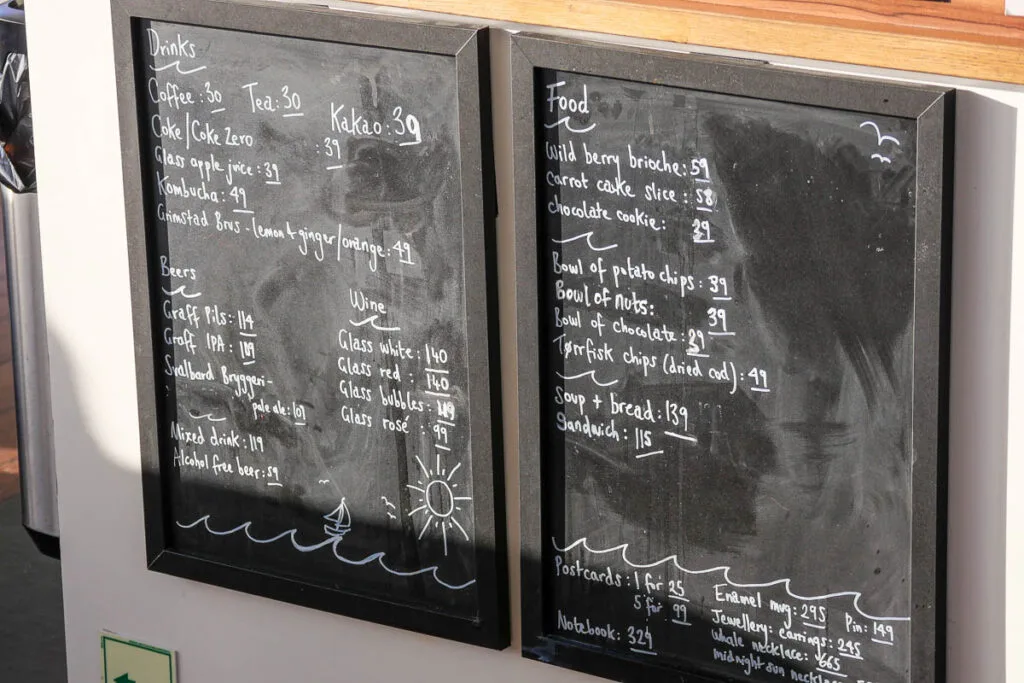 Drinks
Coffee: 30 Tea: 30 Kakao: 39
Coke/Coke Zero : 39
Glass apple juice: 39
Kombucha: 49
Grimstad Brus - lemon & ginger/orange: 49
Beers
Graff Pils: 114
Graff IPA:
Svalbard Bryggeri-
pale ale: 107
Mixed drink: 119
Alcohol free beer: 59
Wine
Glass white: 140
Glass red: 140
Glass bubbles:
Glass rosé: 99
Food
Wild berry brioche: 59
carrot cake slice: 58
chocolate cookie: 39
Bowl of potato chips: 39
Bowl of nuts: 39
Bowl of chocolate: 39
Tørrfisk chips (dried cod): 49
Soup + bread: 139
Sandwich: 115
Postcards: 1 for 25
5 for 99
Notebook: 324
Enamel mug: 295 Pin: 149
Jewellery: earrings: 245
whale necklace: 665
midnight sun necklace